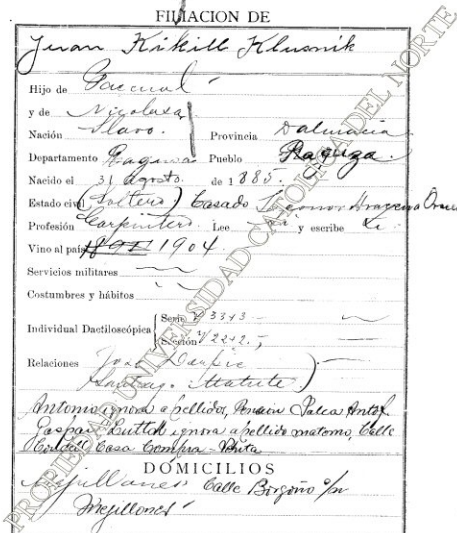 FILIACION DE
Juan Kikill Klusnik
Hijo de Pascual
y de Nicolasa
Nación Slavo. Provincia Dalmacia
Departamento Raguza Pueblo Raguza.
Nacido el 31 Agosto de 1885.
Estado civil (Soltero) Casado Leonor Aracena
Profesión Carpintero. Lee Si y escribe Si
Vino al país 1904.
Servicios militares
Costumbres y hábitos
Individual Dactiloscópica Serie V 3343
Sección V 2242
Relaciones José
Santiago Matute)
Antonio ignora apellido,
Gaspar ignora apellido materno, Calle
Condell Casa Compra Venta
DOMICILIOS
Mejillones Calle Borgoño s/n
Mejillones
PROPIEDAD UNIVERSIDAD CATOLICA DEL NORTE